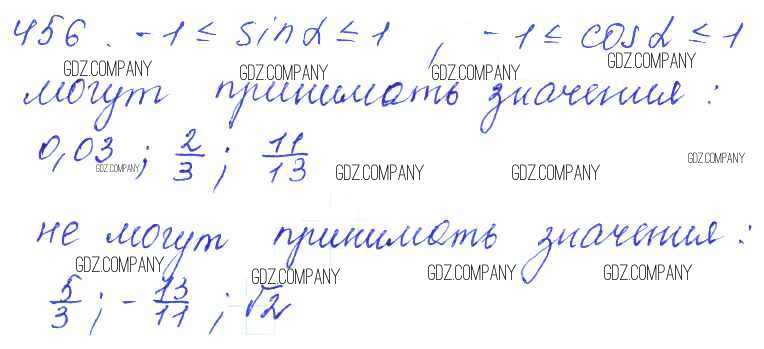 456. -1 ≤ sinα ≤ 1, -1 ≤ cosα ≤ 1
GDZ.COMPANY GDZ.COMPANY GDZ.COMPANY GDZ.COMPANY
могут принимать значения:
0,03; 2/3; 11/13
GDZ.COMPANY GDZ.COMPANY GDZ.COMPANY GDZ.COMPANY
не могут принимать значения:
GDZ.COMPANY GDZ.COMPANY GDZ.COMPANY GDZ.COMPANY
5/3; -13/11; √2